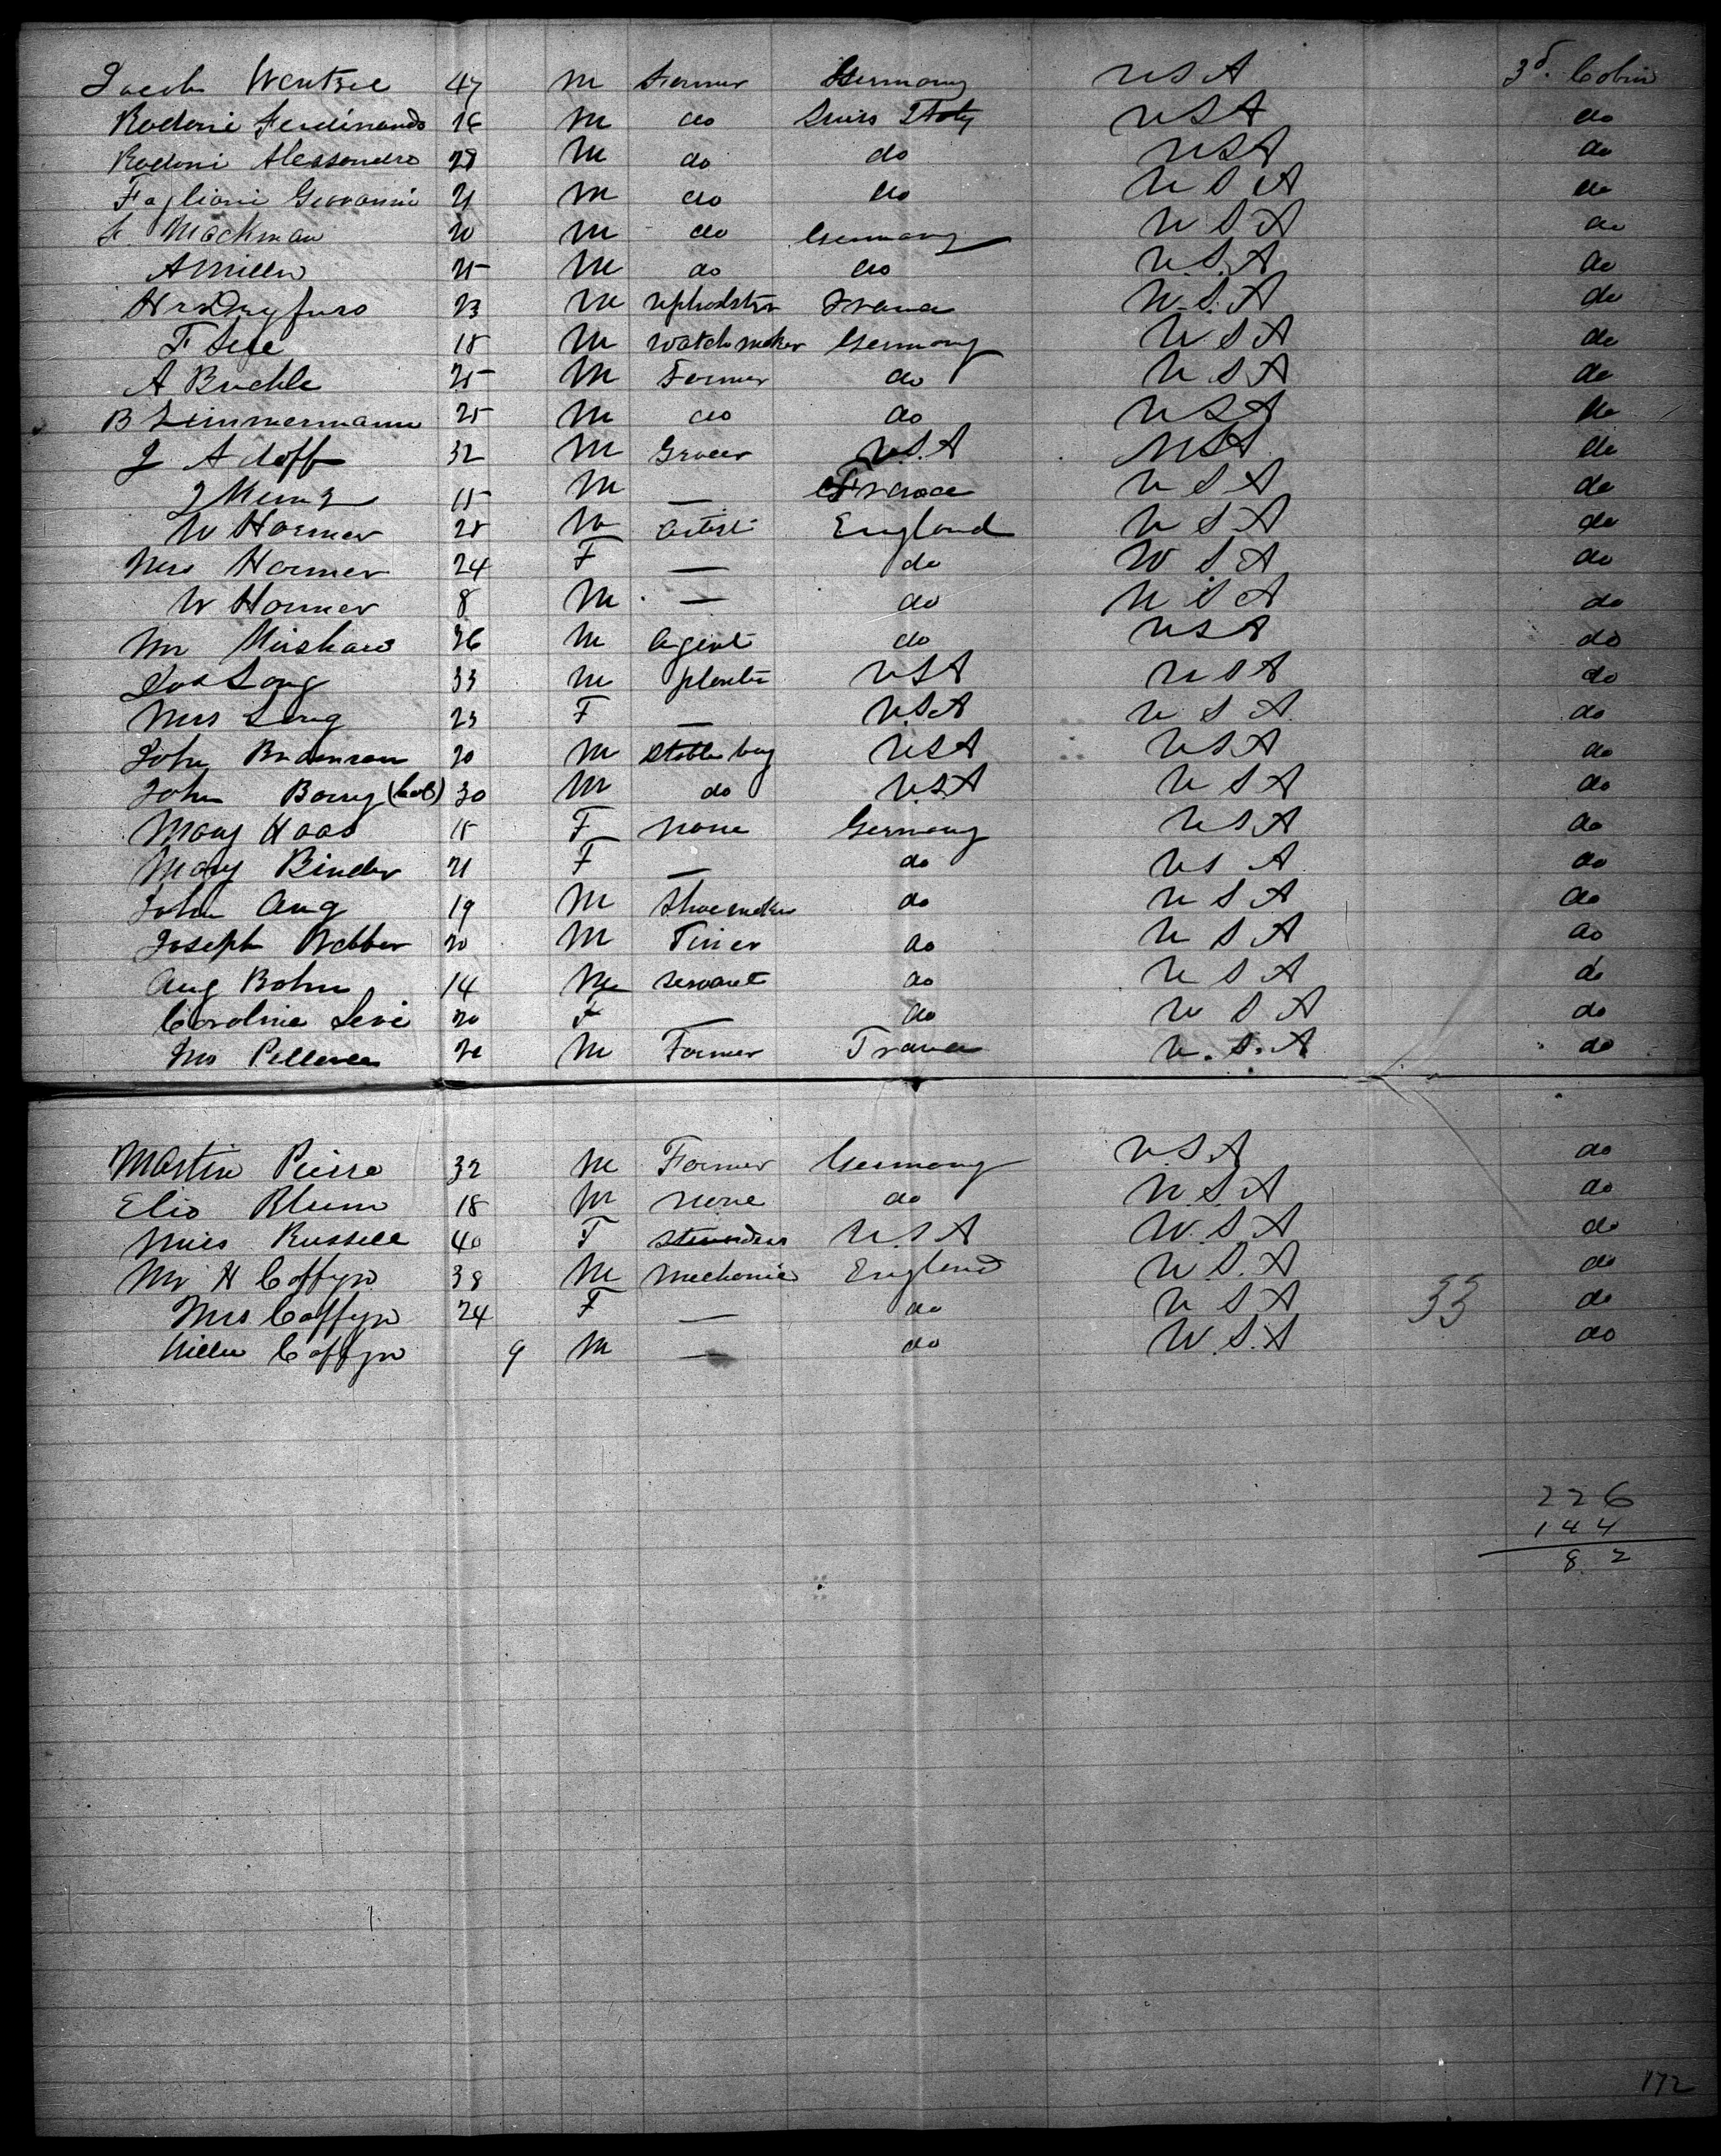 Jacob Wentzel 47 M Farmer Germany U S A 3d. Cabin
Rodoni Ferdinando 26 M do Swiss Italy U S A do
Rodoni Alessandro 28 M do do U S A do
Fagliani Giovanni 21 M do do U S A do
Mackman 20 M do Germany U S A do
A Miller 25 M do do U.S.A do
Hr Dryfuss 23 M upholstr France U.S.A do
F See 18 M watchmaker Germany U S A do
A Buchle 25 M Farmer do U.S A do
B Zimmermann 25 M do do U S A do
J Adoff 32 M Grocer U.S.A U S A do
15 M — France U S A do
W Harmer 28 M artist England U S A do
Mrs Harmer 24 F — do U S A do
W Harmer 8 M — do U S A do
Mr Minshaw 36 M agent do U S A do
Long 33 M planter U S A U S A do
Mrs Long 23 F — U.S.A U S A do
John 20 M Stable boy U S A U S A do
John Barry (Col) 30 M do U.S.A U S A do
Mary Haas 18 F none Germany U S A do
Mary Binder 21 F — do U S A do
John Aug 19 M Shoemaker do U S A do
Joseph Webber 20 M Tiner do U S A do
Aug Bohm 14 M servant do U S A do
Caroline Levi 20 F — do U S A do
M Farmer France U.S.A do
Martin Pierre 32 M Farmer Germany U.S.A do
Elis Blum 18 M none do U.S.A do
Miss Russell 40 F Stewardess U.S A U.S A do
Mr H Coffyn 38 M Mechanic England U.S.A do
Mrs Coffyn 24 F — do U S A 33 do
Coffyn 9 M — do U.S.A do
226
144
82
172